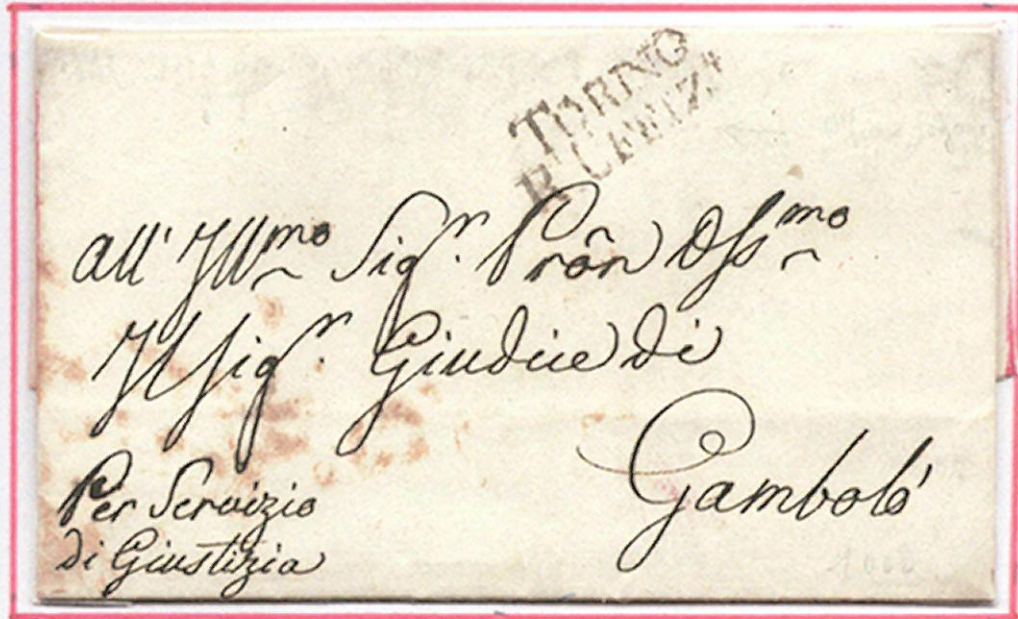 TORINO
all' Ill.mo Sig.r Prôn Oss.mo
Il Sig.r Giudice di
Gambolò
Per Servizio
di Giustizia